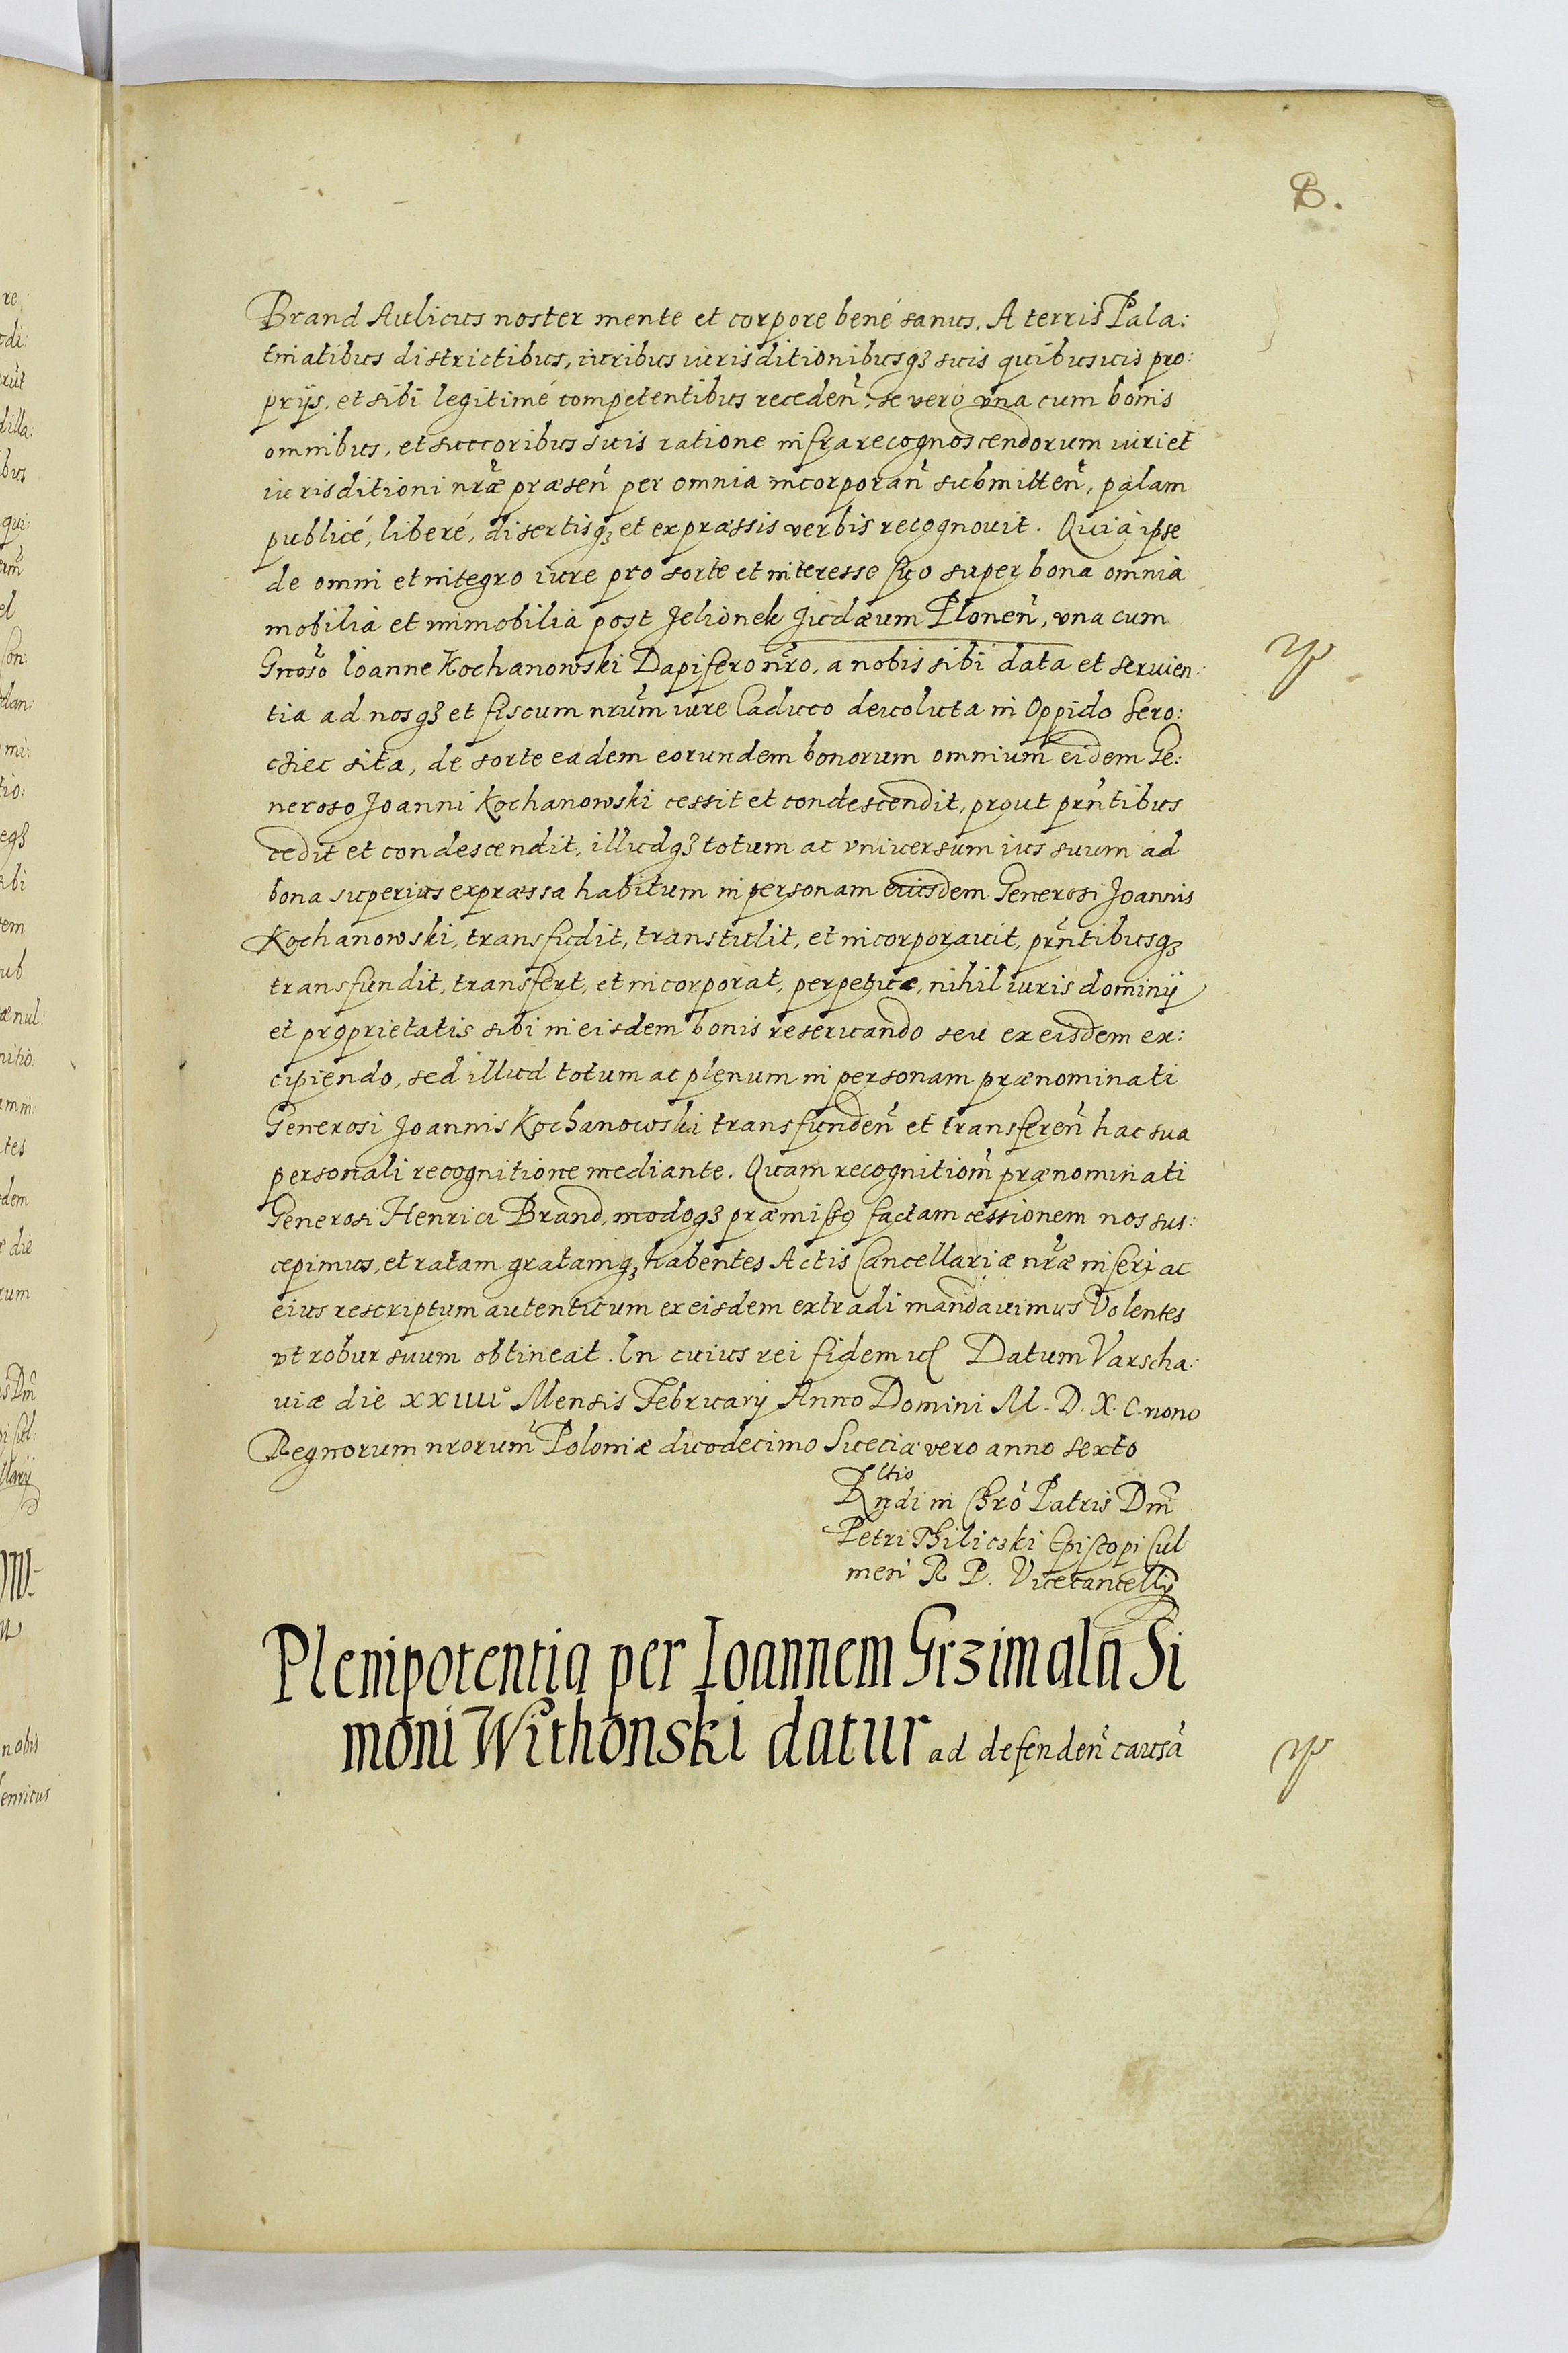 8.
Brand Aulicus noster mente et corpore bené sanus. A terris Pala:
tinatibus districtibus, iuribus iurisditionibusqꝫ suis quibusuis pro:
prijs. et sibi legitimé competentibus receden̄, se vero vna cum bonis
omnibus, et succoribus suis ratione infra recognoscendorum iuri et
iurisditioni nr̄æ præsen̄ per omnia incorporan̄ submitten̄, palam
publicé, liberé, disertisqꝫ et expræssis verbis recognouit. Quia ipse
de omni et integro iure pro sorte et interesse suo super bona omnia
mobilia et immobilia post Jelionek Judæum Plonen̄, vna cum
Gnoso Ioanne Kochanowski Dapifero nr̄o, a nobis sibi data et seruien:
tia ad nosqꝫ et fiscum nrūm iure Caduco deuoluta in Oppido Sero:
cziec sita, de sorte eadem eorundem bonorum omnium eidem Ge:
neroso Joanni Kochanowski cessit et condescendit, prout prn̄tibus
cedit et condescendit, illudqꝫ totum ac vniuersum ius suum ad
bona superius expræssa habitum in personam eiusdem Generosi Joannis
Kochanowski, transfudit, transtulit, et incorporauit, prn̄tibusqꝫ
transfundit, transfert, et incorporat, perpetuæ, nihil iuris dominij
et proprietatis sibi in eisdem bonis reseruando seu ex eisdem ex:
cipiendo, sed illud totum ac plenum in personam prænominati
Generosi Joannis Kochanowski transfunden̄ et transferen̄ hac sua
personali recognitione mediante. Quam recognitiom̄ prænominati
Generosi Henrici Brand, modoqꝫ præmisso factam cessionem nos sus:
cepimus, et ratam gratamqꝫ habentes Actis Cancellariæ nr̄æ inseri ac
eius rescriptum autenticum ex eisdem extradi mandauimus Volentes
vt robur suum obtineat. In cuius rei fidem Datum Varscha:
uiæ die xxiiii° Mensis Februarij Anno Domini M. D. X. C. nono
Regnorum nrorum̄ Poloniæ duodecimo Sueciæ vero anno sexto
Rltio
Rndi in Chrō Patris Dni
Petri Thiliczki Episcopi Cul
men̄ R P. Vicecancellrij
Plenipotentia per Ioannem Grzimala Si
moni Withonski datur ad defenden̄ causā